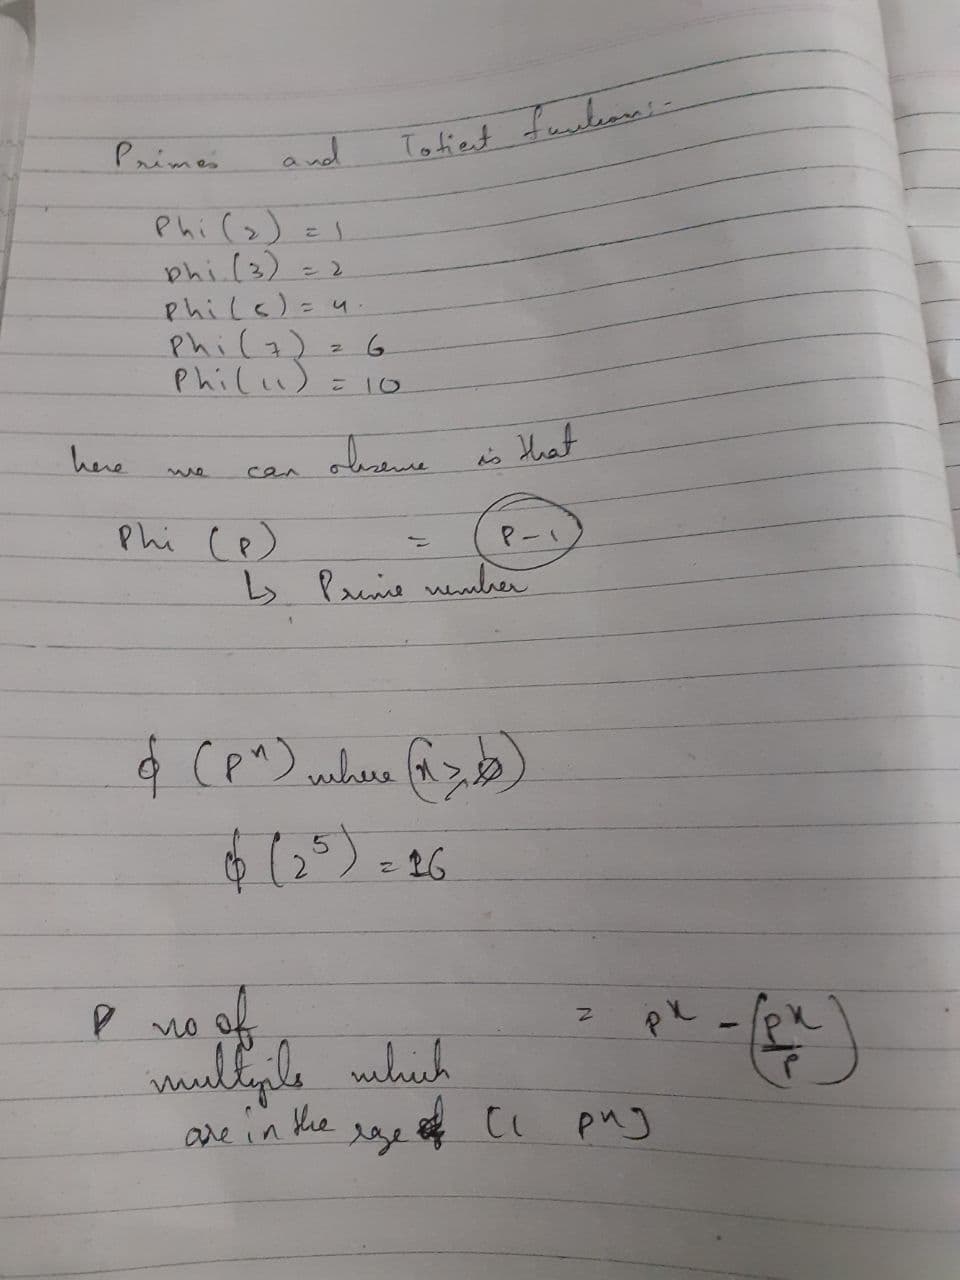 Primes and Totient functions:-
Phi(2) = 1
phi(3) = 2
phi(5) = 4.
Phi(7) = 6
Phi(11) = 10
here we can observe is that
Phi (P) = P-1
↳ Prime number
ϕ (Pⁿ) where (n ≥
ϕ (2⁵) = 16
P no of = pˣ - (pˣ/p)
which
are in the of [1 pn]